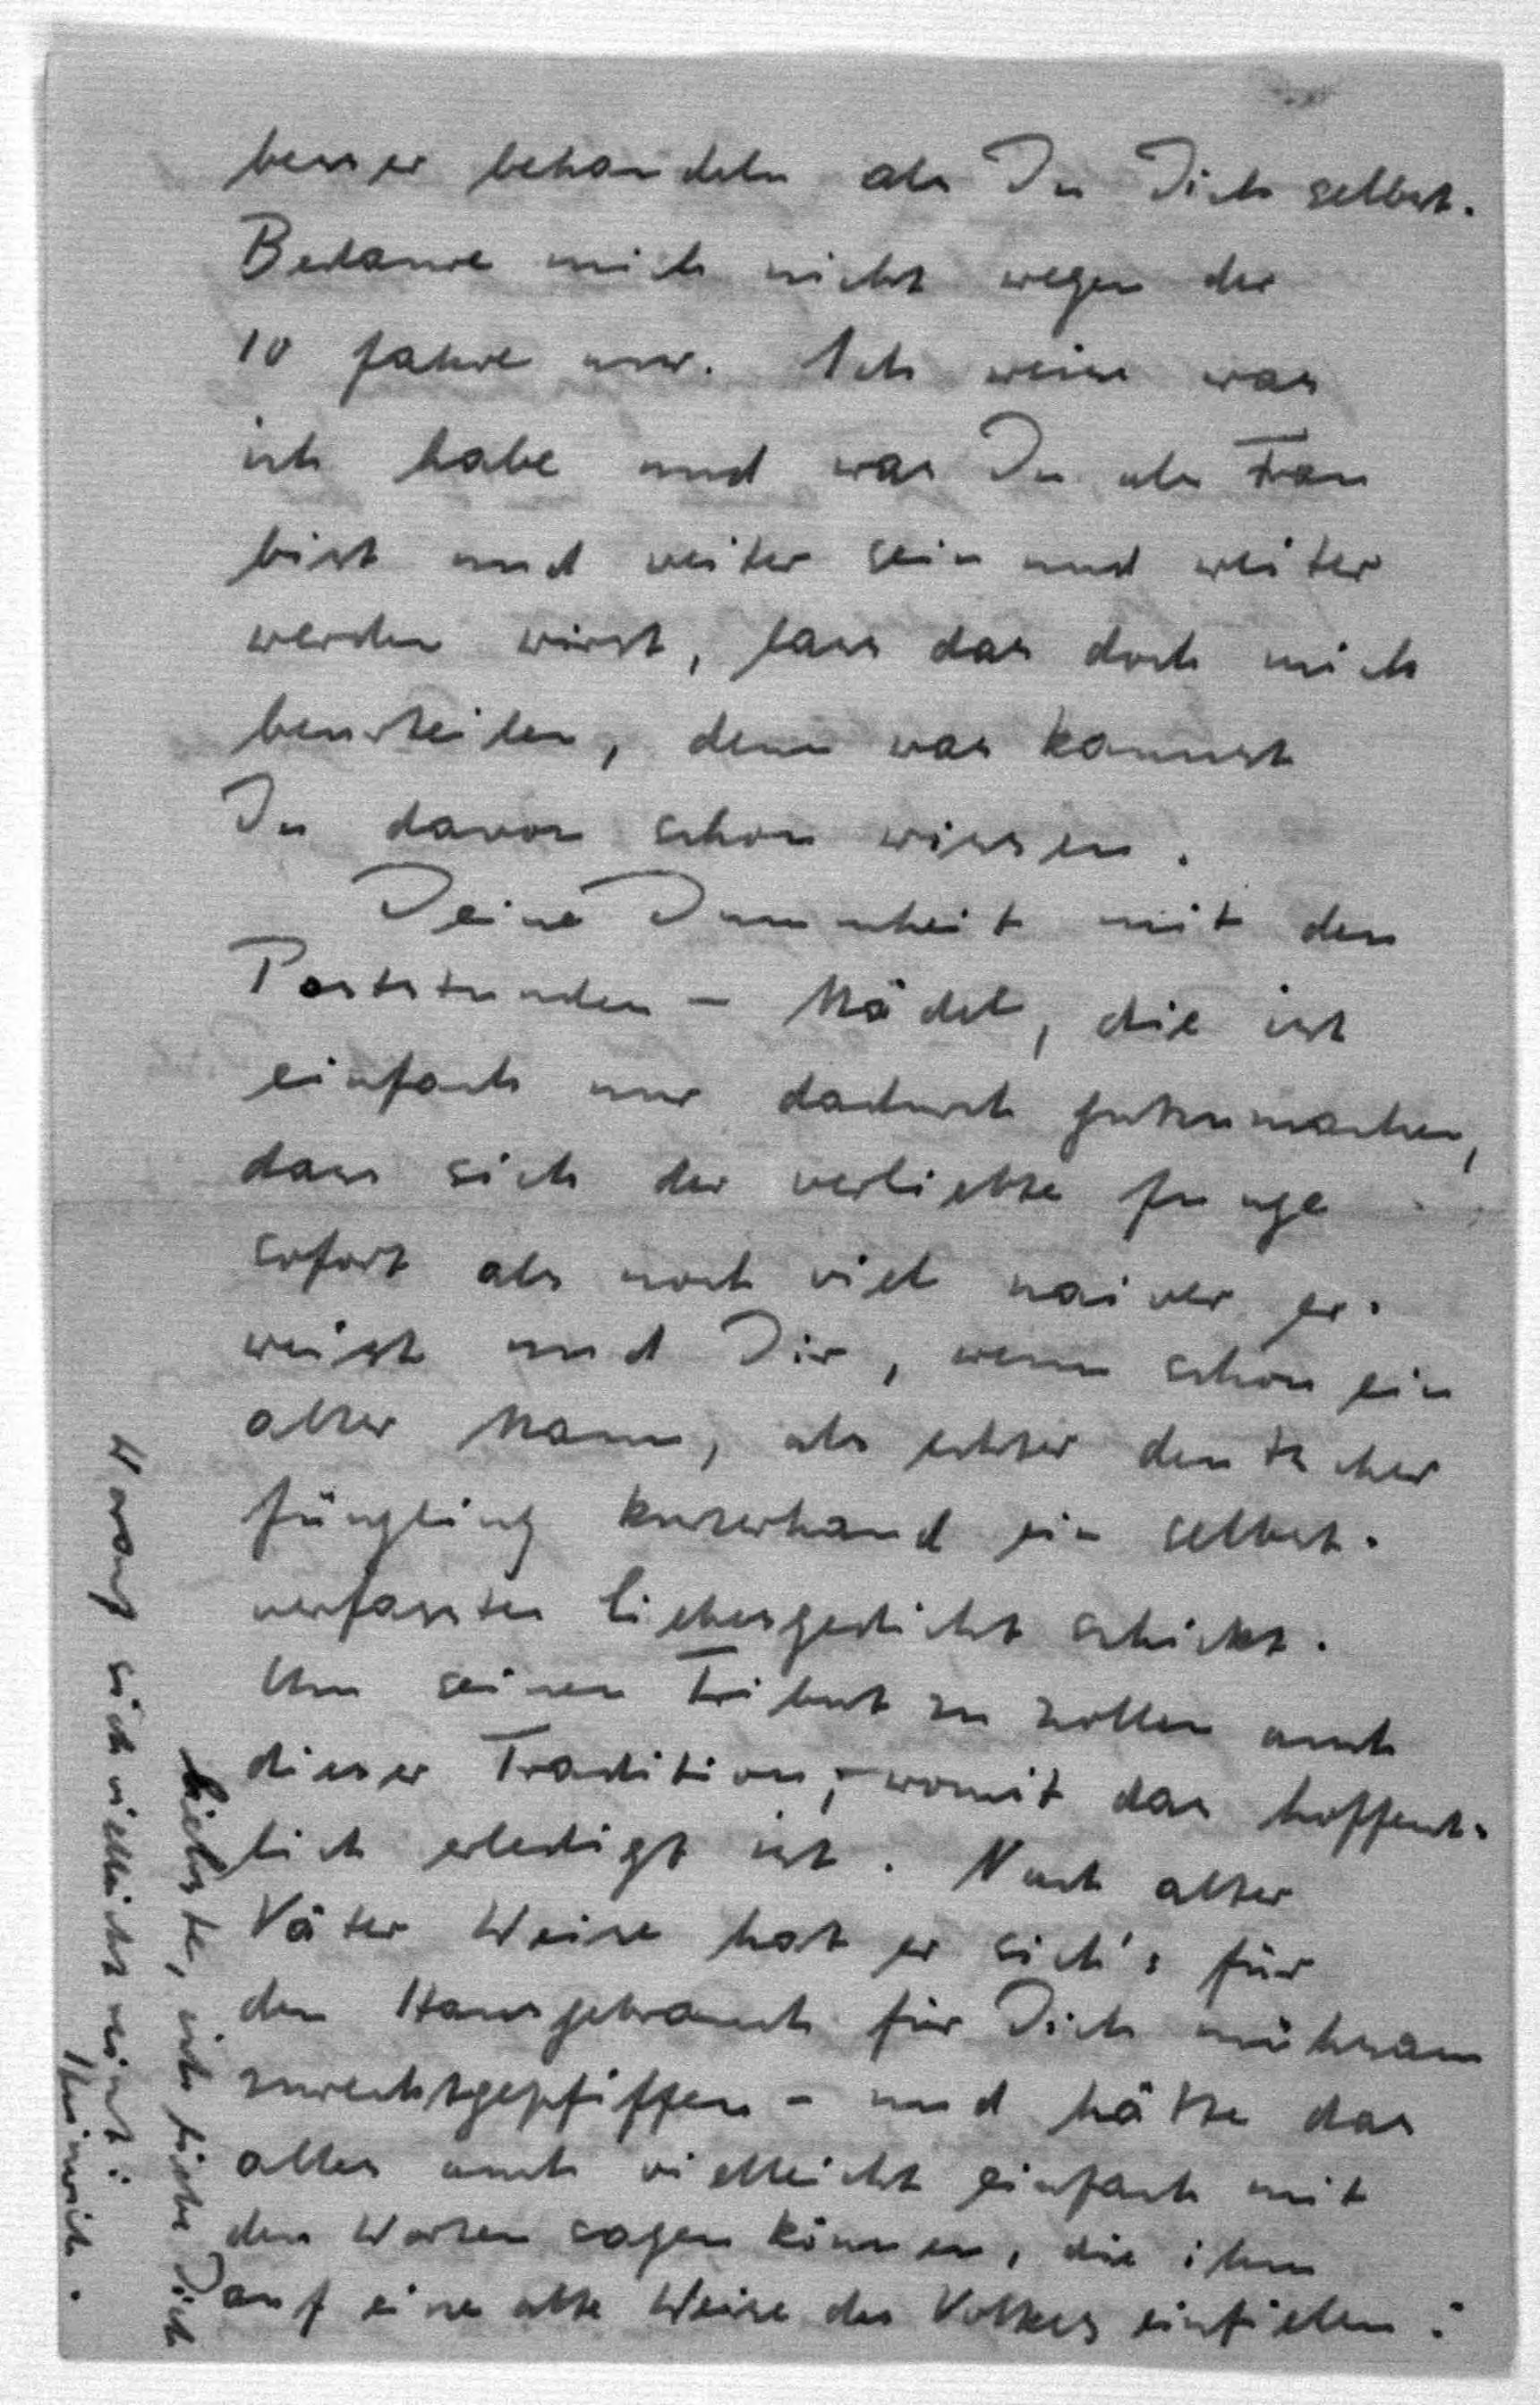 besser behandeln als Du Dich selbst.
Bedaure mich nicht wegen der
10 Jahre usw. Ich weiss was
ich habe und was Du als Frau
bist und weiter sein und weiter
werden wirst, lass das doch mich
beurteilen, denn was kannst
Du davon schon wissen.
Deine Dummheit mit den
Poststunden - Mädel, die ist
einfach nur dadurch gutzumachen,
dass sich der verliebte Junge
sofort als noch viel naiver er-
weist und Dir, wenn schon ein
alter Mann, als echter deutscher
Jüngling kurzerhand ein selbst-
verfasstes Liebesgedicht schickt.
Um seinen Tribut zu zollen auch
dieser Tradition, - womit das hoffent-
lich erledigt ist. Nach alter
Väter Weise hat er sich's für
den Hausgebrauch für Dich mühsam
zurechtgepfiffen - und hätte das
alles auch vielleicht einfach mit
den Worten sagen können, die ihm
auf eine alte Weise des Volkes einfielen:
Liebste, ich liebe Dich
sich vielleicht reimt:
Heinrich.